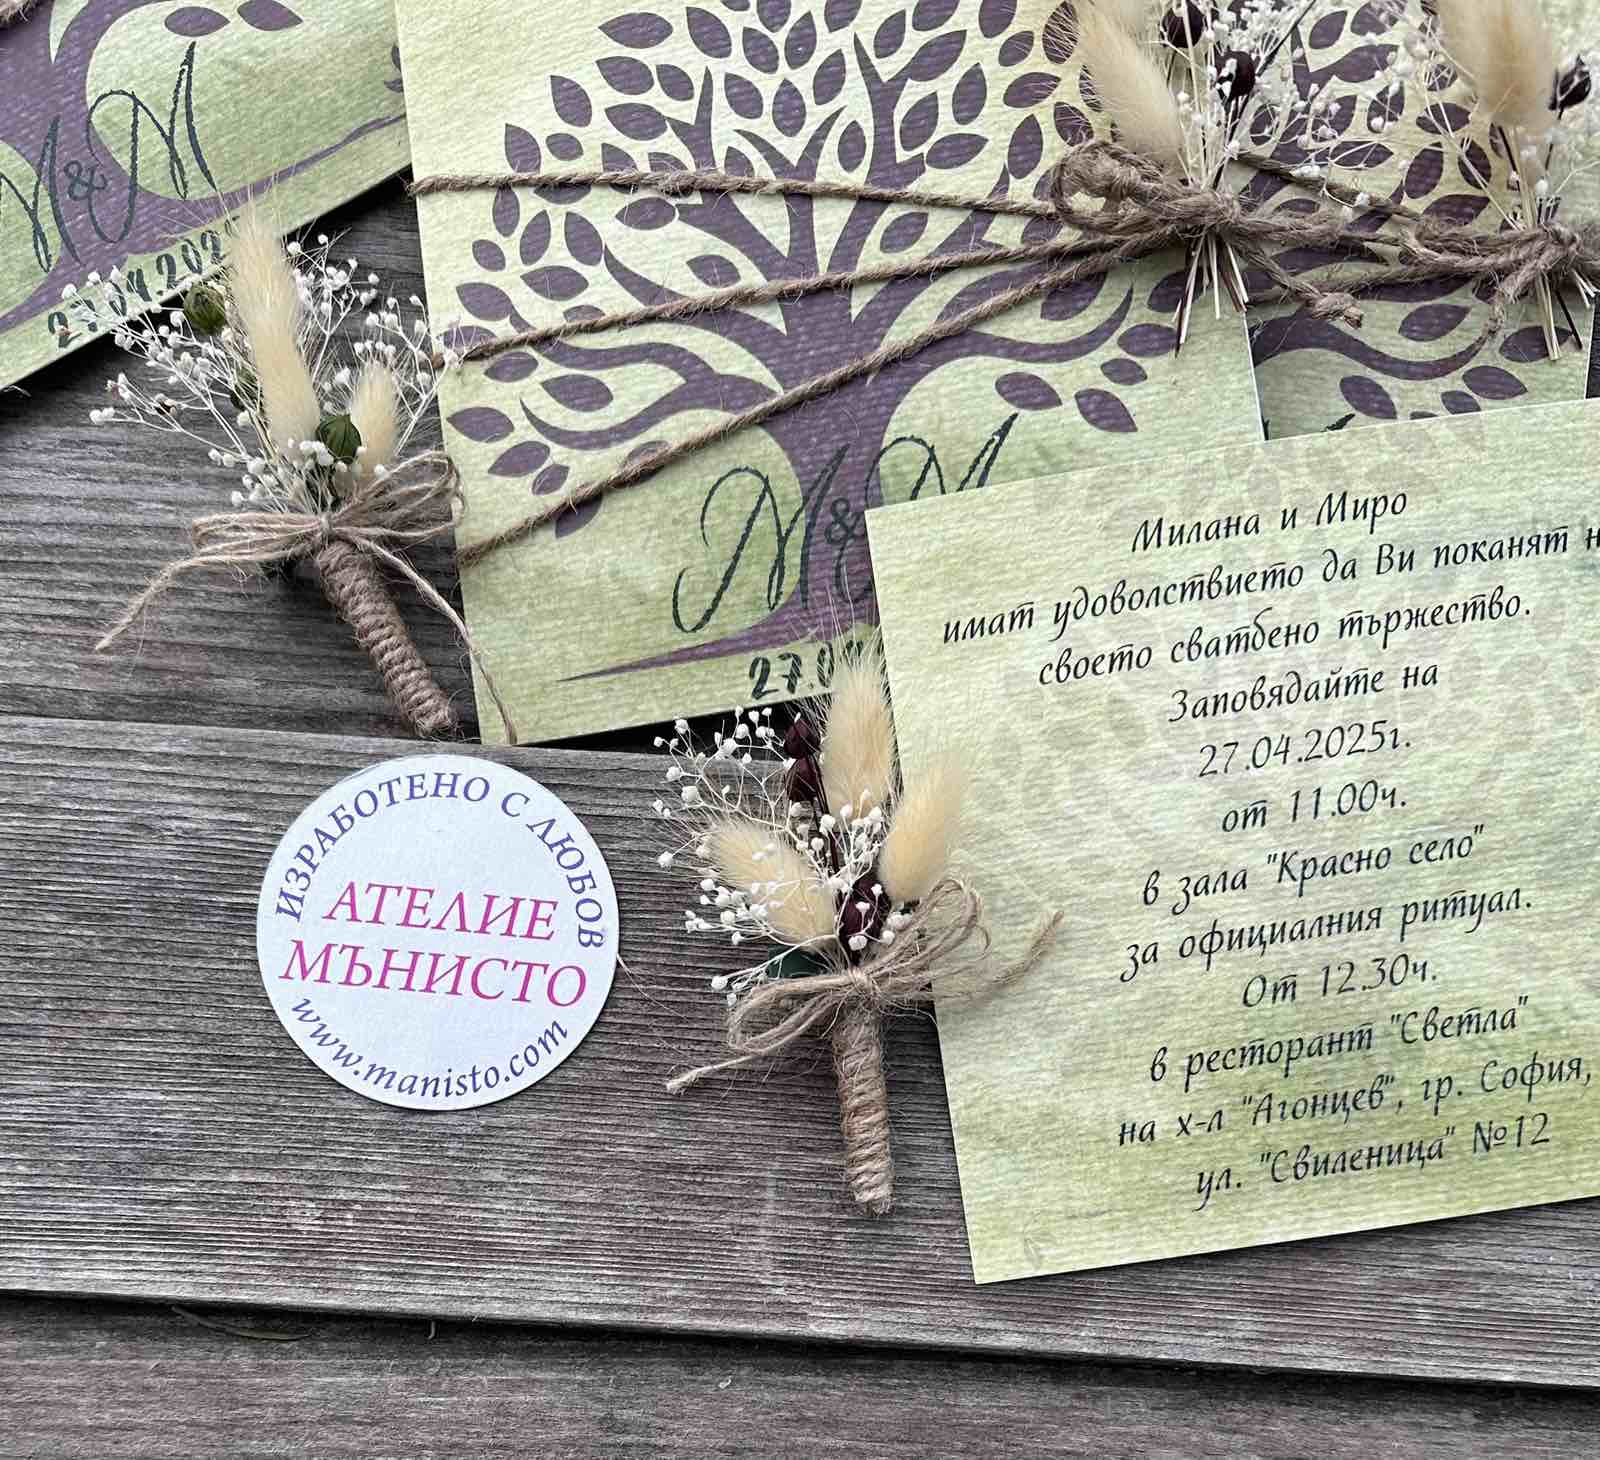 M&M
27.04.202
M&M
27.0
Милана и Миро
имат удоволствието да Ви поканят н
своето сватбено тържество.
Заповядайте на
27.04.2025г.
от 11.00ч.
в зала "Красно село"
за официалния ритуал.
От 12.30ч.
в ресторант "Светла"
на х-л "Агонцев", гр. София,
ул. "Свиленица" №12
ИЗРАБОТЕНО С ЛЮБОВ
АТЕЛИЕ
МЪНИСТО
www.manisto.com